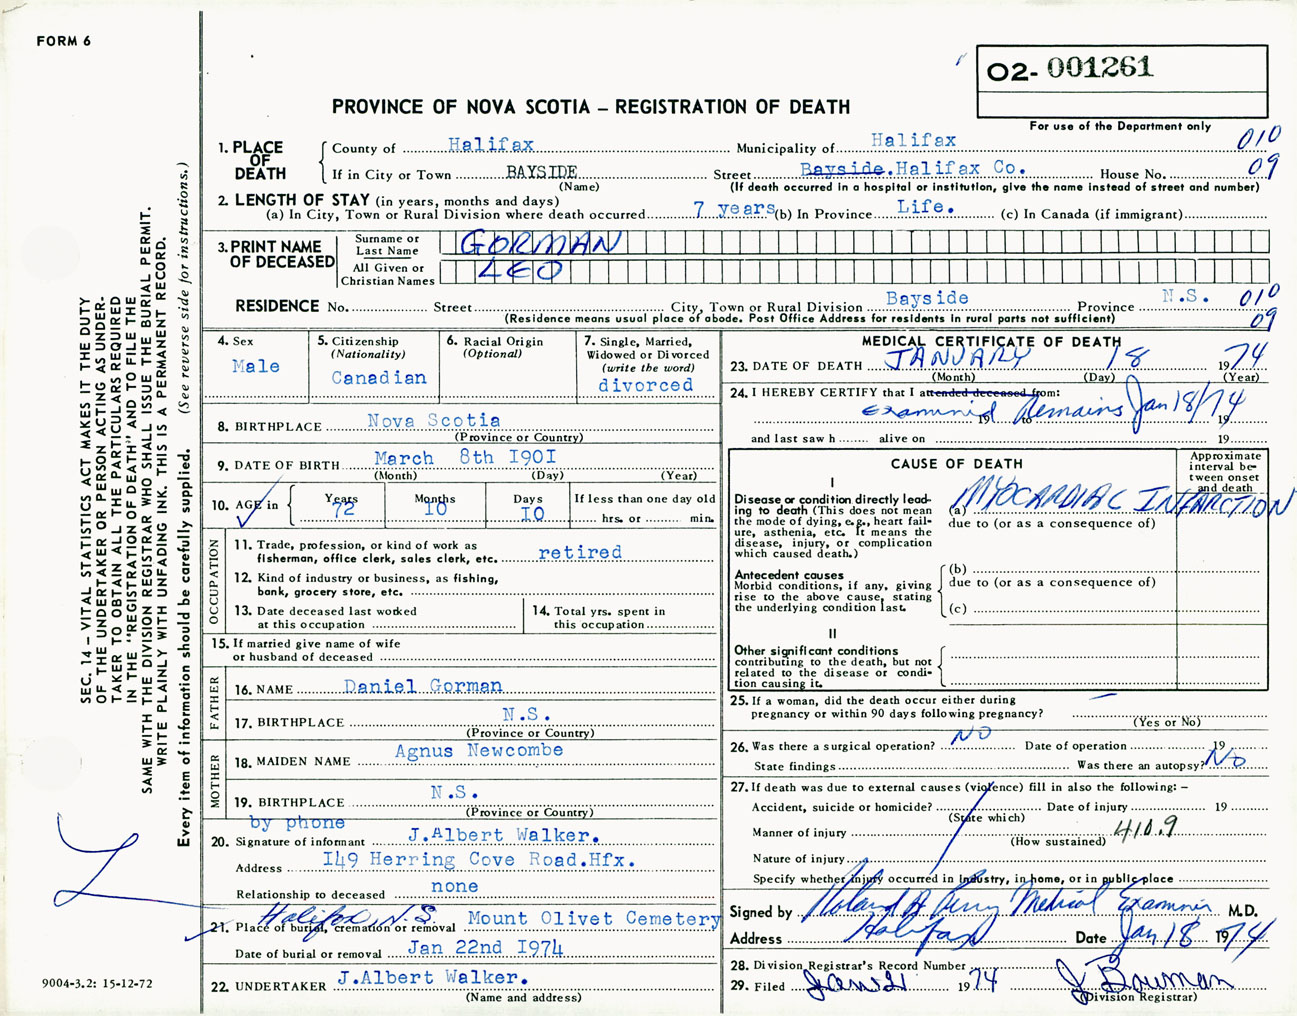 FORM 6
O2- 001261
PROVINCE OF NOVA SCOTIA – REGISTRATION OF DEATH
For use of the Department only
1. PLACE OF DEATH
County of Halifax Municipality of Halifax 010
If in City or Town BAYSIDE Street Bayside. Halifax Co. House No. 09
(Name) (If death occurred in a hospital or institution, give the name instead of street and number)
2. LENGTH OF STAY (in years, months and days)
(a) In City, Town or Rural Division where death occurred 7 years (b) In Province Life. (c) In Canada (if immigrant)
3. PRINT NAME OF DECEASED
Surname or Last Name GORMAN
All Given or Christian Names LEO
RESIDENCE No. Street City, Town or Rural Division Bayside Province N.S. 010
(Residence means usual place of abode. Post Office Address for residents in rural parts not sufficient) 09
4. Sex
Male
5. Citizenship
(Nationality)
Canadian
6. Racial Origin
(Optional)
7. Single, Married,
Widowed or Divorced
(write the word)
divorced
8. BIRTHPLACE Nova Scotia
(Province or Country)
9. DATE OF BIRTH March 8th I90I
(Month) (Day) (Year)
10. AGE in Years 72 Months I0 Days I0 If less than one day old
hrs. or min.
OCCUPATION
11. Trade, profession, or kind of work as
fisherman, office clerk, sales clerk, etc. retired
12. Kind of industry or business, as fishing,
bank, grocery store, etc.
13. Date deceased last worked
at this occupation
14. Total yrs. spent in
this occupation
15. If married give name of wife
or husband of deceased
FATHER
16. NAME Daniel Gorman
17. BIRTHPLACE N.S.
(Province or Country)
MOTHER
18. MAIDEN NAME Agnus Newcombe
19. BIRTHPLACE N.S.
(Province or Country)
by phone
20. Signature of informant J.Albert Walker.
Address I49 Herring Cove Road.Hfx.
Relationship to deceased none
Halifax, N.S.
21. Place of burial, cremation or removal Mount Olivet Cemetery
Date of burial or removal Jan 22nd I974
22. UNDERTAKER J.Albert Walker.
(Name and address)
MEDICAL CERTIFICATE OF DEATH
23. DATE OF DEATH JANUARY 18 1974
(Month) (Day) (Year)
24. I HEREBY CERTIFY that I attended deceased from:
Examined Remains Jan 18/74
19 to 19
and last saw h alive on 19
CAUSE OF DEATH
Approximate
interval be-
tween onset
and death
I
Disease or condition directly lead-
ing to death (This does not mean
the mode of dying, e.g., heart fail-
ure, asthenia, etc. It means the
disease, injury, or complication
which caused death.)
(a) MYOCARDIAC INFARCTION
due to (or as a consequence of)
Antecedent causes
Morbid conditions, if any, giving
rise to the above cause, stating
the underlying condition last.
(b)
due to (or as a consequence of)
(c)
II
Other significant conditions
contributing to the death, but not
related to the disease or condi-
tion causing it.
25. If a woman, did the death occur either during
pregnancy or within 90 days following pregnancy? –
(Yes or No)
26. Was there a surgical operation? NO Date of operation 19
State findings Was there an autopsy? NO
27. If death was due to external causes (violence) fill in also the following: –
Accident, suicide or homicide? Date of injury 19
(State which)
Manner of injury 410.9
(How sustained)
Nature of injury
Specify whether injury occurred in Industry, in home, or in public place
Signed by Roland A Perry Medical Examiner M.D.
Address Halifax Date Jan 18 1974
28. Division Registrar's Record Number
29. Filed Jan 21 1974 J Bowman
(Division Registrar)
SEC. 14 – VITAL STATISTICS ACT MAKES IT THE DUTY
OF THE UNDERTAKER OR PERSON ACTING AS UNDER-
TAKER TO OBTAIN ALL THE PARTICULARS REQUIRED
IN THE "REGISTRATION OF DEATH" AND TO FILE THE
SAME WITH THE DIVISION REGISTRAR WHO SHALL ISSUE THE BURIAL PERMIT.
WRITE PLAINLY WITH UNFADING INK. THIS IS A PERMANENT RECORD.
Every item of information should be carefully supplied. (See reverse side for instructions.)
9004-3.2: 15-12-72